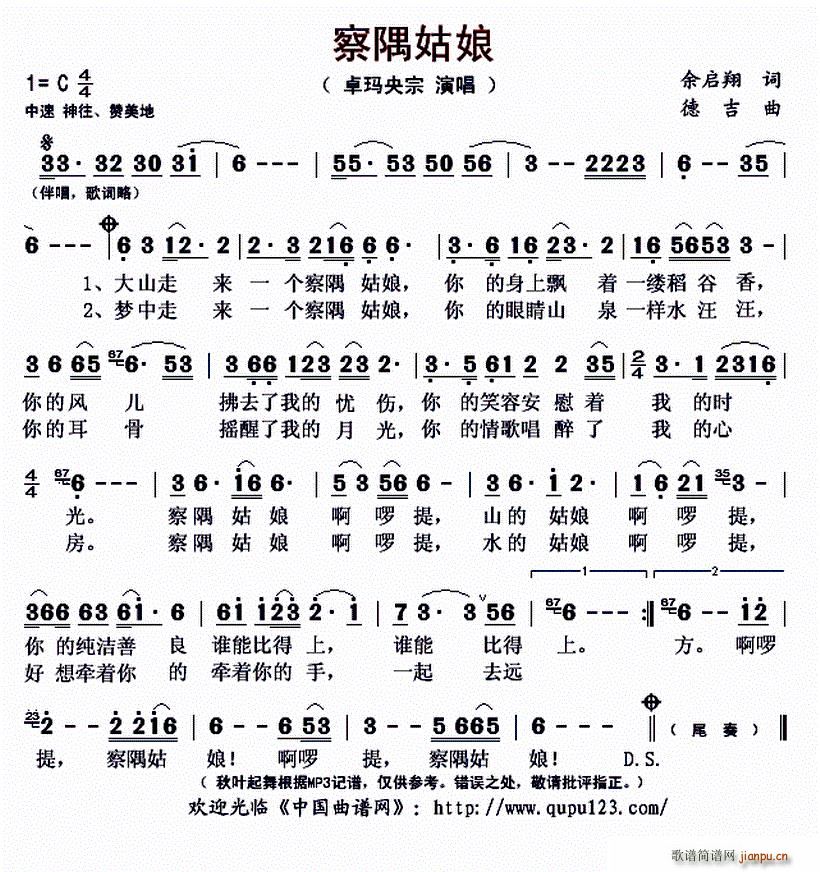 察隅姑娘
1= C 4/4 （ 卓玛央宗 演唱 ） 余启翔 词
中速 神往、赞美地 德 吉 曲
33· 32 30 31 | 6 - - - | 55· 53 50 56 | 3 - - 2223 | 6 - - 35 |
(伴唱，歌词略)
6 - - - | 6 3 12· 2 | 2· 3 216 6· | 3· 6 16 23· 2 | 16 5653 3 - |
1、大山走 来 一 个察隅 姑娘， 你 的身上飘 着 一缕稻 谷 香，
2、梦中走 来 一 个察隅 姑娘， 你 的眼睛山 泉 一样水 汪 汪，
3 6 65 67 6· 53 | 366 123 23 2· | 3· 5 61 2 2 35 | 2/4 3· 1 2316 |
你的风 儿 拂去了我的 忧 伤，你 的笑容安 慰着 我 的时
你的耳 骨 摇醒了我的 月 光，你 的情歌唱 醉了 我 的心
4/4 67 6 - - - | 3 6· 16 6· | 5 3 56 6 - | 3 6· 1 2· | 1 6 21 35 3 - |
光。 察隅 姑 娘 啊 啰 提， 山的 姑娘 啊 啰 提，
房。 察隅 姑 娘 啊 啰 提， 水的 姑娘 啊 啰 提，
1 2
366 63 61· 6 | 61 123 2· 1 | 7 3· 3 56 | 67 6 - - :‖ 67 6 - - 12 |
你 的纯洁善 良 谁能比得 上， 谁能 比得 上。 方。 啊啰
好 想牵着你 的 牵着你的 手， 一起 去远
23 2 - - 2 216 | 6 - - 6 53 | 3 - - 5 665 | 6 - - - ‖ （ 尾 奏 ） ‖
提， 察隅姑 娘！ 啊啰 提， 察隅姑 娘！ D.S.
（ 秋叶起舞根据MP3记谱，仅供参考。错误之处，敬请批评指正。）
欢迎光临《中国曲谱网》：http://www.qupu123.com/
歌谱简谱网 jianpu.cn